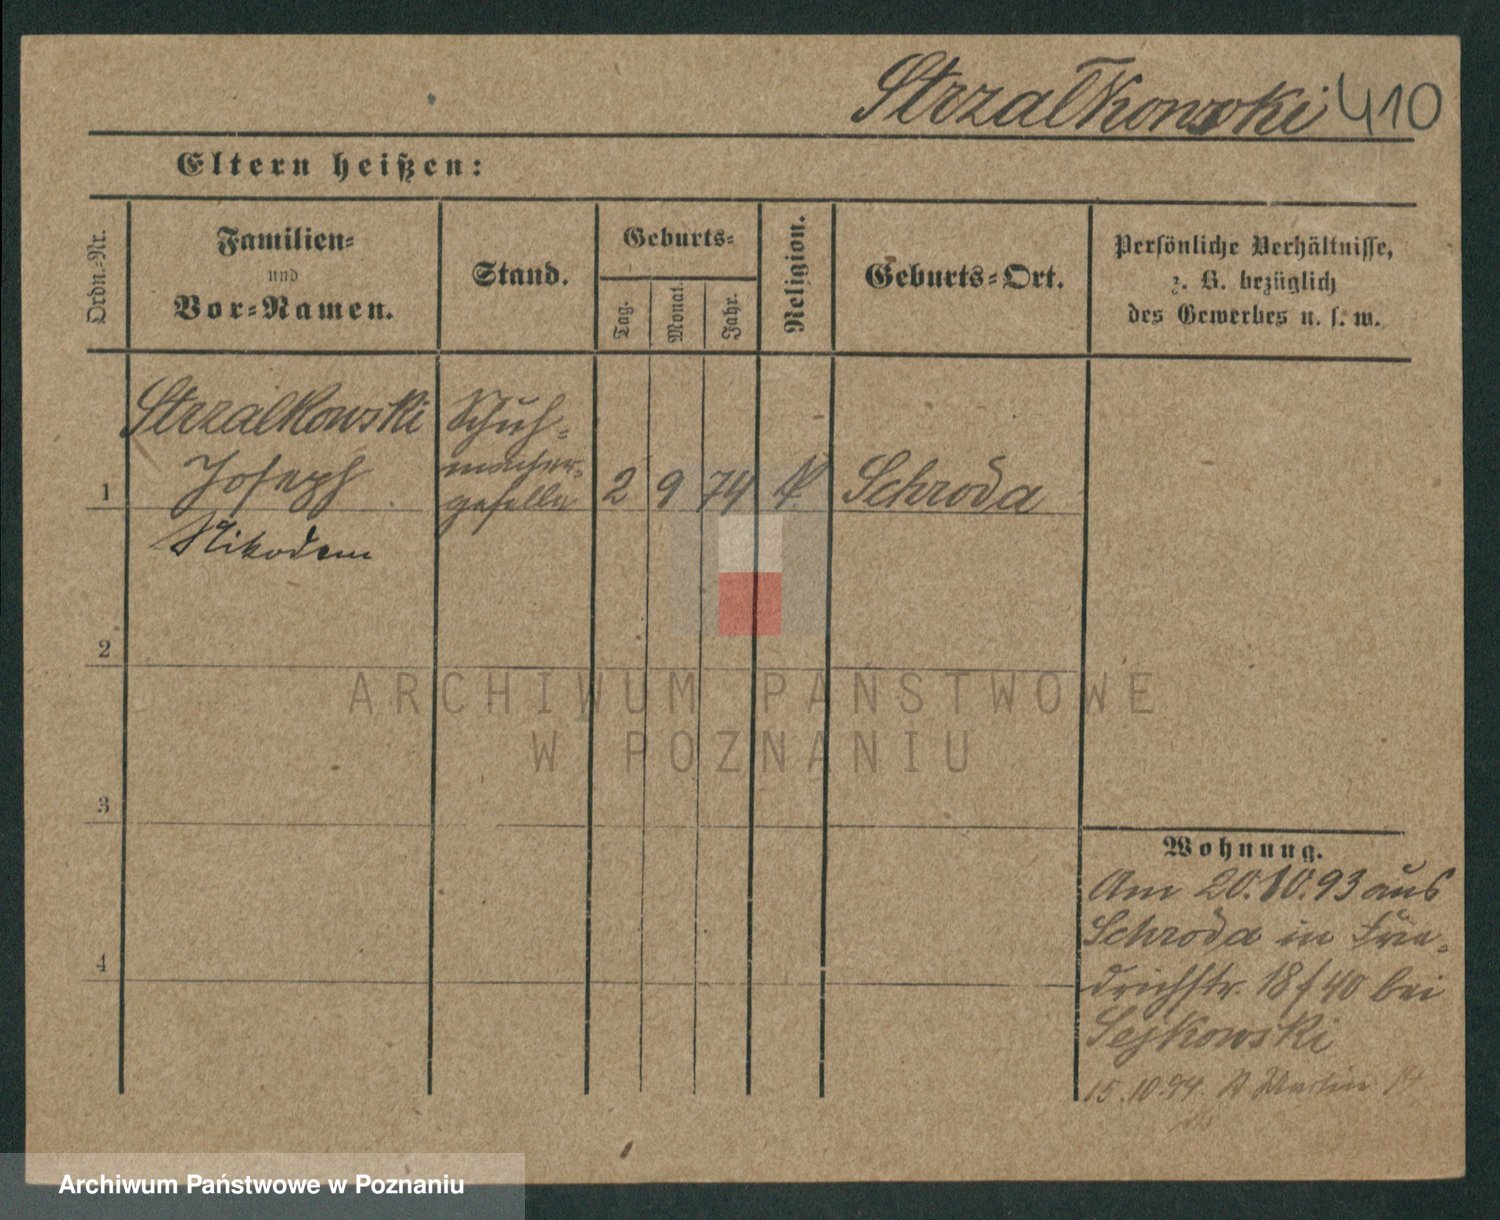 Strzałkowski 410
Eltern heißen:
Ordn.-Nr.
Familien-
und
Vor-Namen.
Stand.
Geburts-
Tag.
Monat.
Jahr.
Religion.
Geburts-Ort.
Persönliche Verhältnisse,
z. B. bezüglich
des Gewerbes u. s. w.
Strzalkowski
Joseph
Nikodem
Schuh-
macher-
geselle
1
2 9 74
K.
Schroda
2
3
4
Wohnung.
Am 20.10.93 aus
Schroda in Frie-
drichstr. 18 f 40 bei
Sejkowski
15.10.94. St Martin
ARCHIWUM PAŃSTWOWE
W POZNANIU
Archiwum Państwowe w Poznaniu